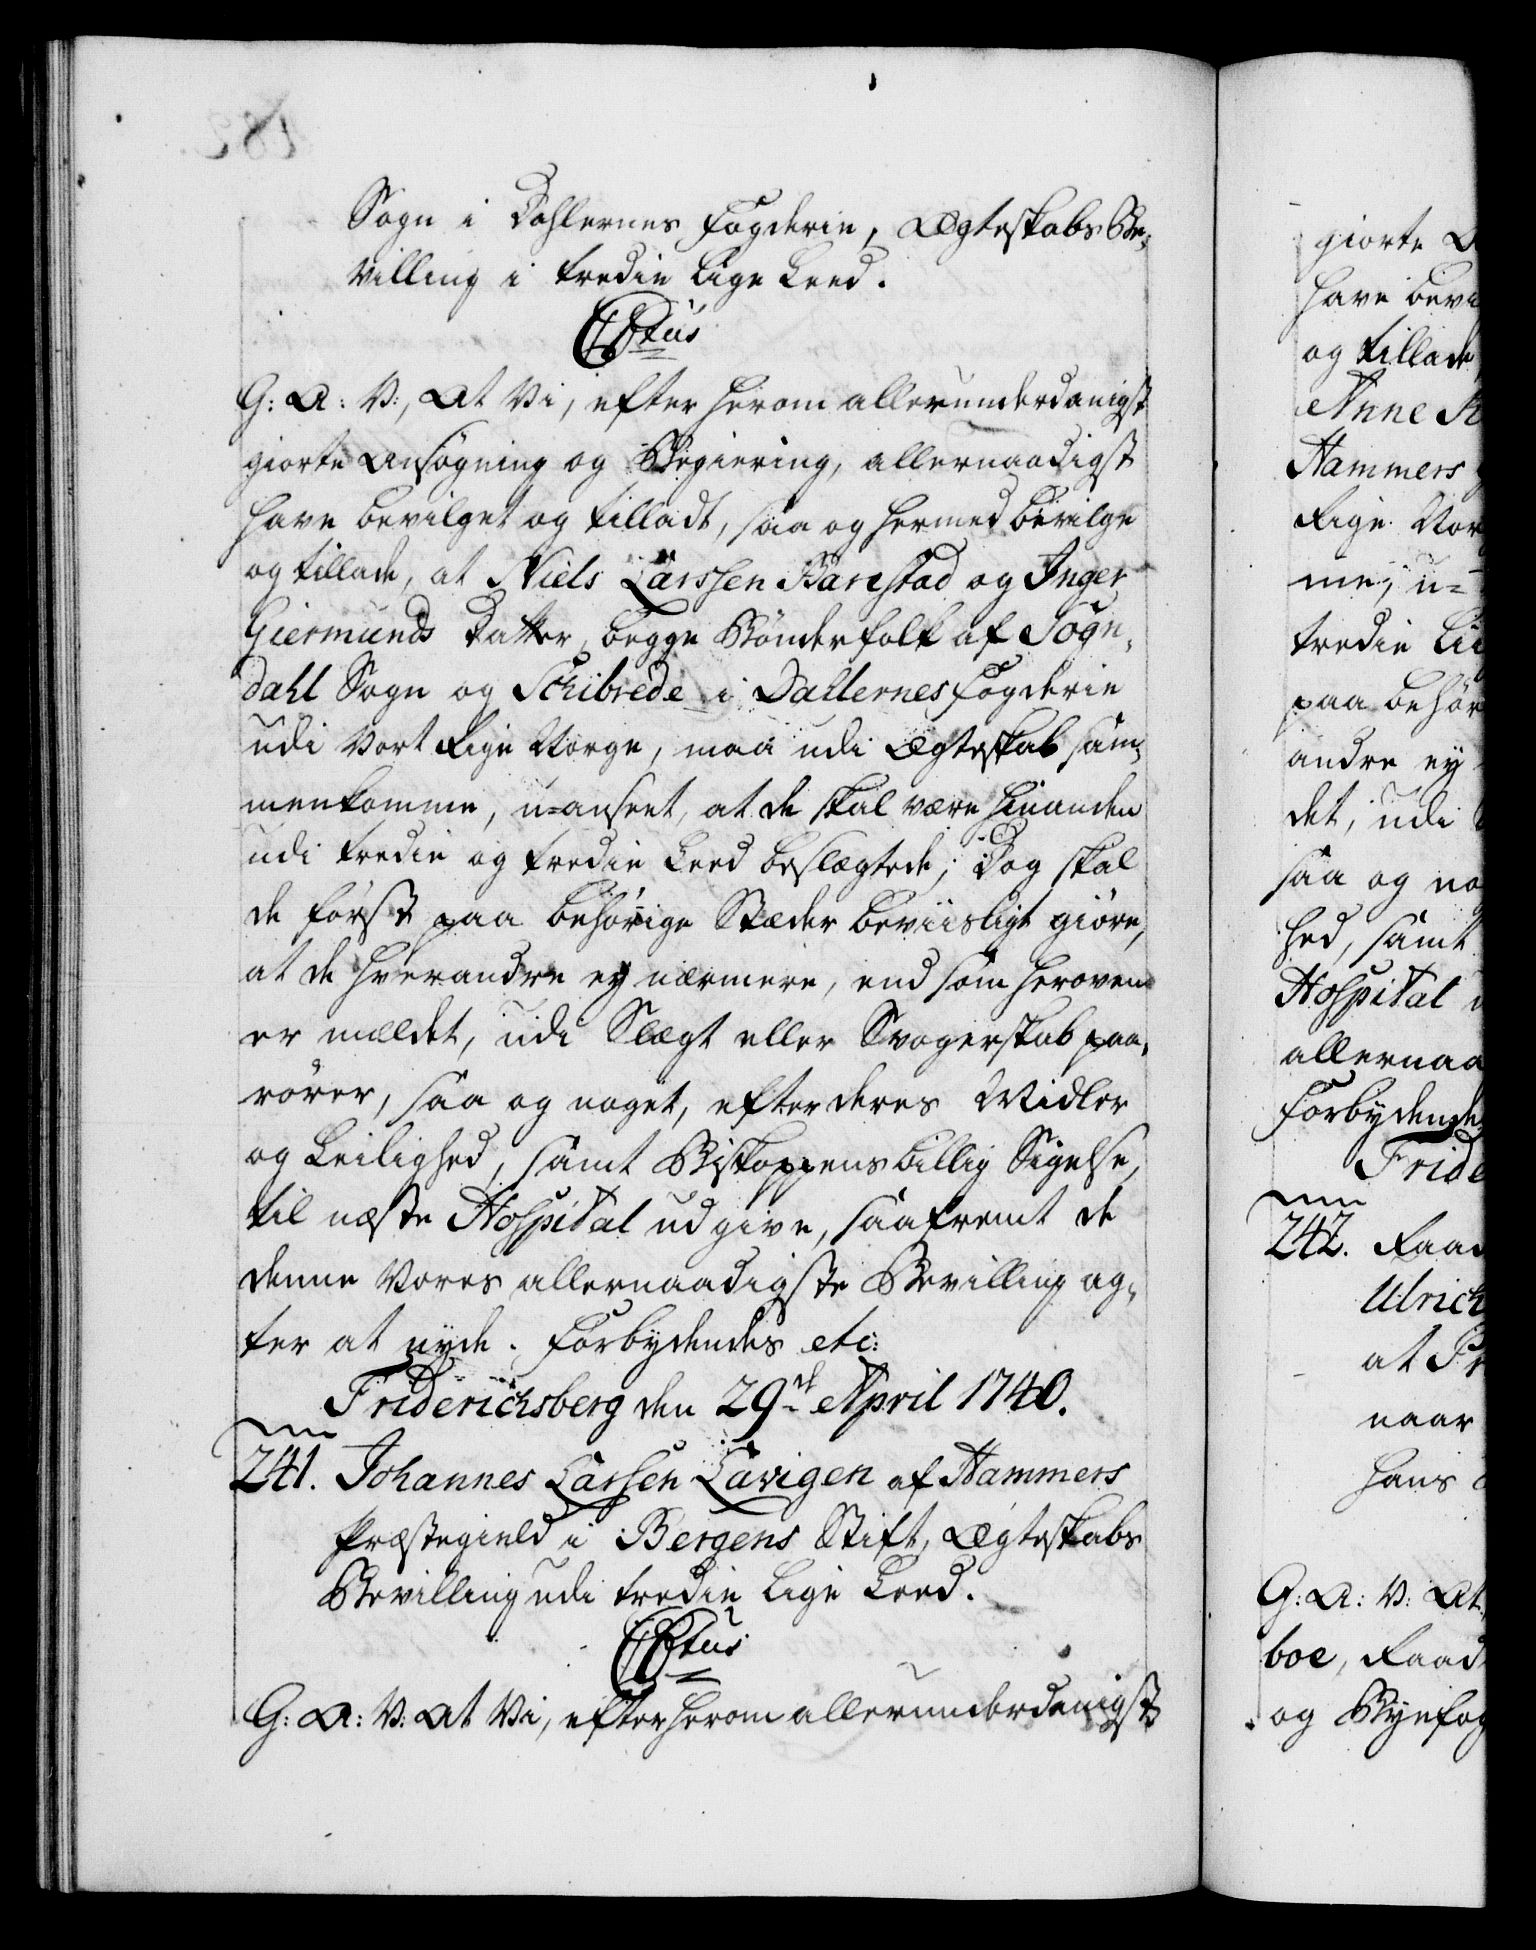 Sogn i Dahlernes Fogderie, Ægteskabs Be-
villing i tredie lige Leed.
CStus
G: A: V:, At Vi, efter herom allerunderdanigst
giorte Ansøgning og Begiering, allernaadigst
have bevilget og tilladt, saa og hermed bevilge
og tillade, at Niels Larssen Barestad og Inger
Giermunds Datter, begge Bønderfolk af Sogn-
dahl Sogn og Schibrede i Dallernes Fogderie
udi Vort Rige Norge, maa udi Ægteskab sam-
menkomme, u-anseet, at de skal være hinanden
udi tredie og tredie Leed beslægtede; Dog skal
de først paa behørige Stæder beviisligt giøre,
at de hverandre ey nærmere, end som heroven
er meldet, udi Slægt eller Svogerskab paa-
rører, saa og noget, efter deres Midler
og Leilighed, samt Biskoppens billig Sigelse,
til næste Hospital udgive, saafremt de
denne Vores allernaadigste Bevilling ag-
ter at nyde. Forbydendes etc:
Friderichsberg den 29de April 1740.
241. Johannes Larsen Lavigen af Hammers
Præstegield i Bergens Stift, Ægteskabs
Bevilling udi tredie lige Leed.
CStus
G: A: V: At Vi, efter herom allerunderdanigst
giorte
have
og tillade
Anne
Hammers
Rige Nor
me, u-
tredie Li
paa behør
andre ey
det, udi
saa og no
hed, samt
Hospital
allernaa
Forbydende
Fride
242. Raad
Ulrich
at
naar
hans
G: A: V: At
boe, Raad
og Byefog